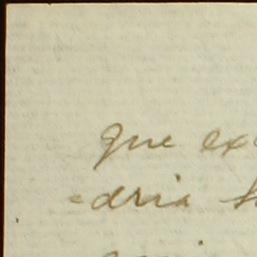 que ex
=dria